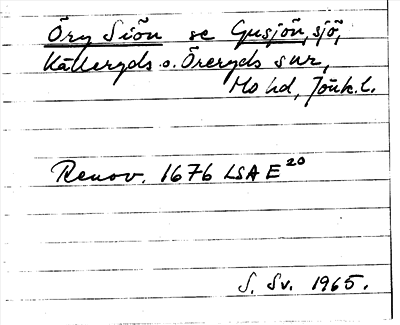 Öry Siön se Gusjön, sjö,
Källeryds o. Öreryds snr,
Mo hd, Jönk. l.
Renov. 1676 LSA E 20
S. Sv. 1965.